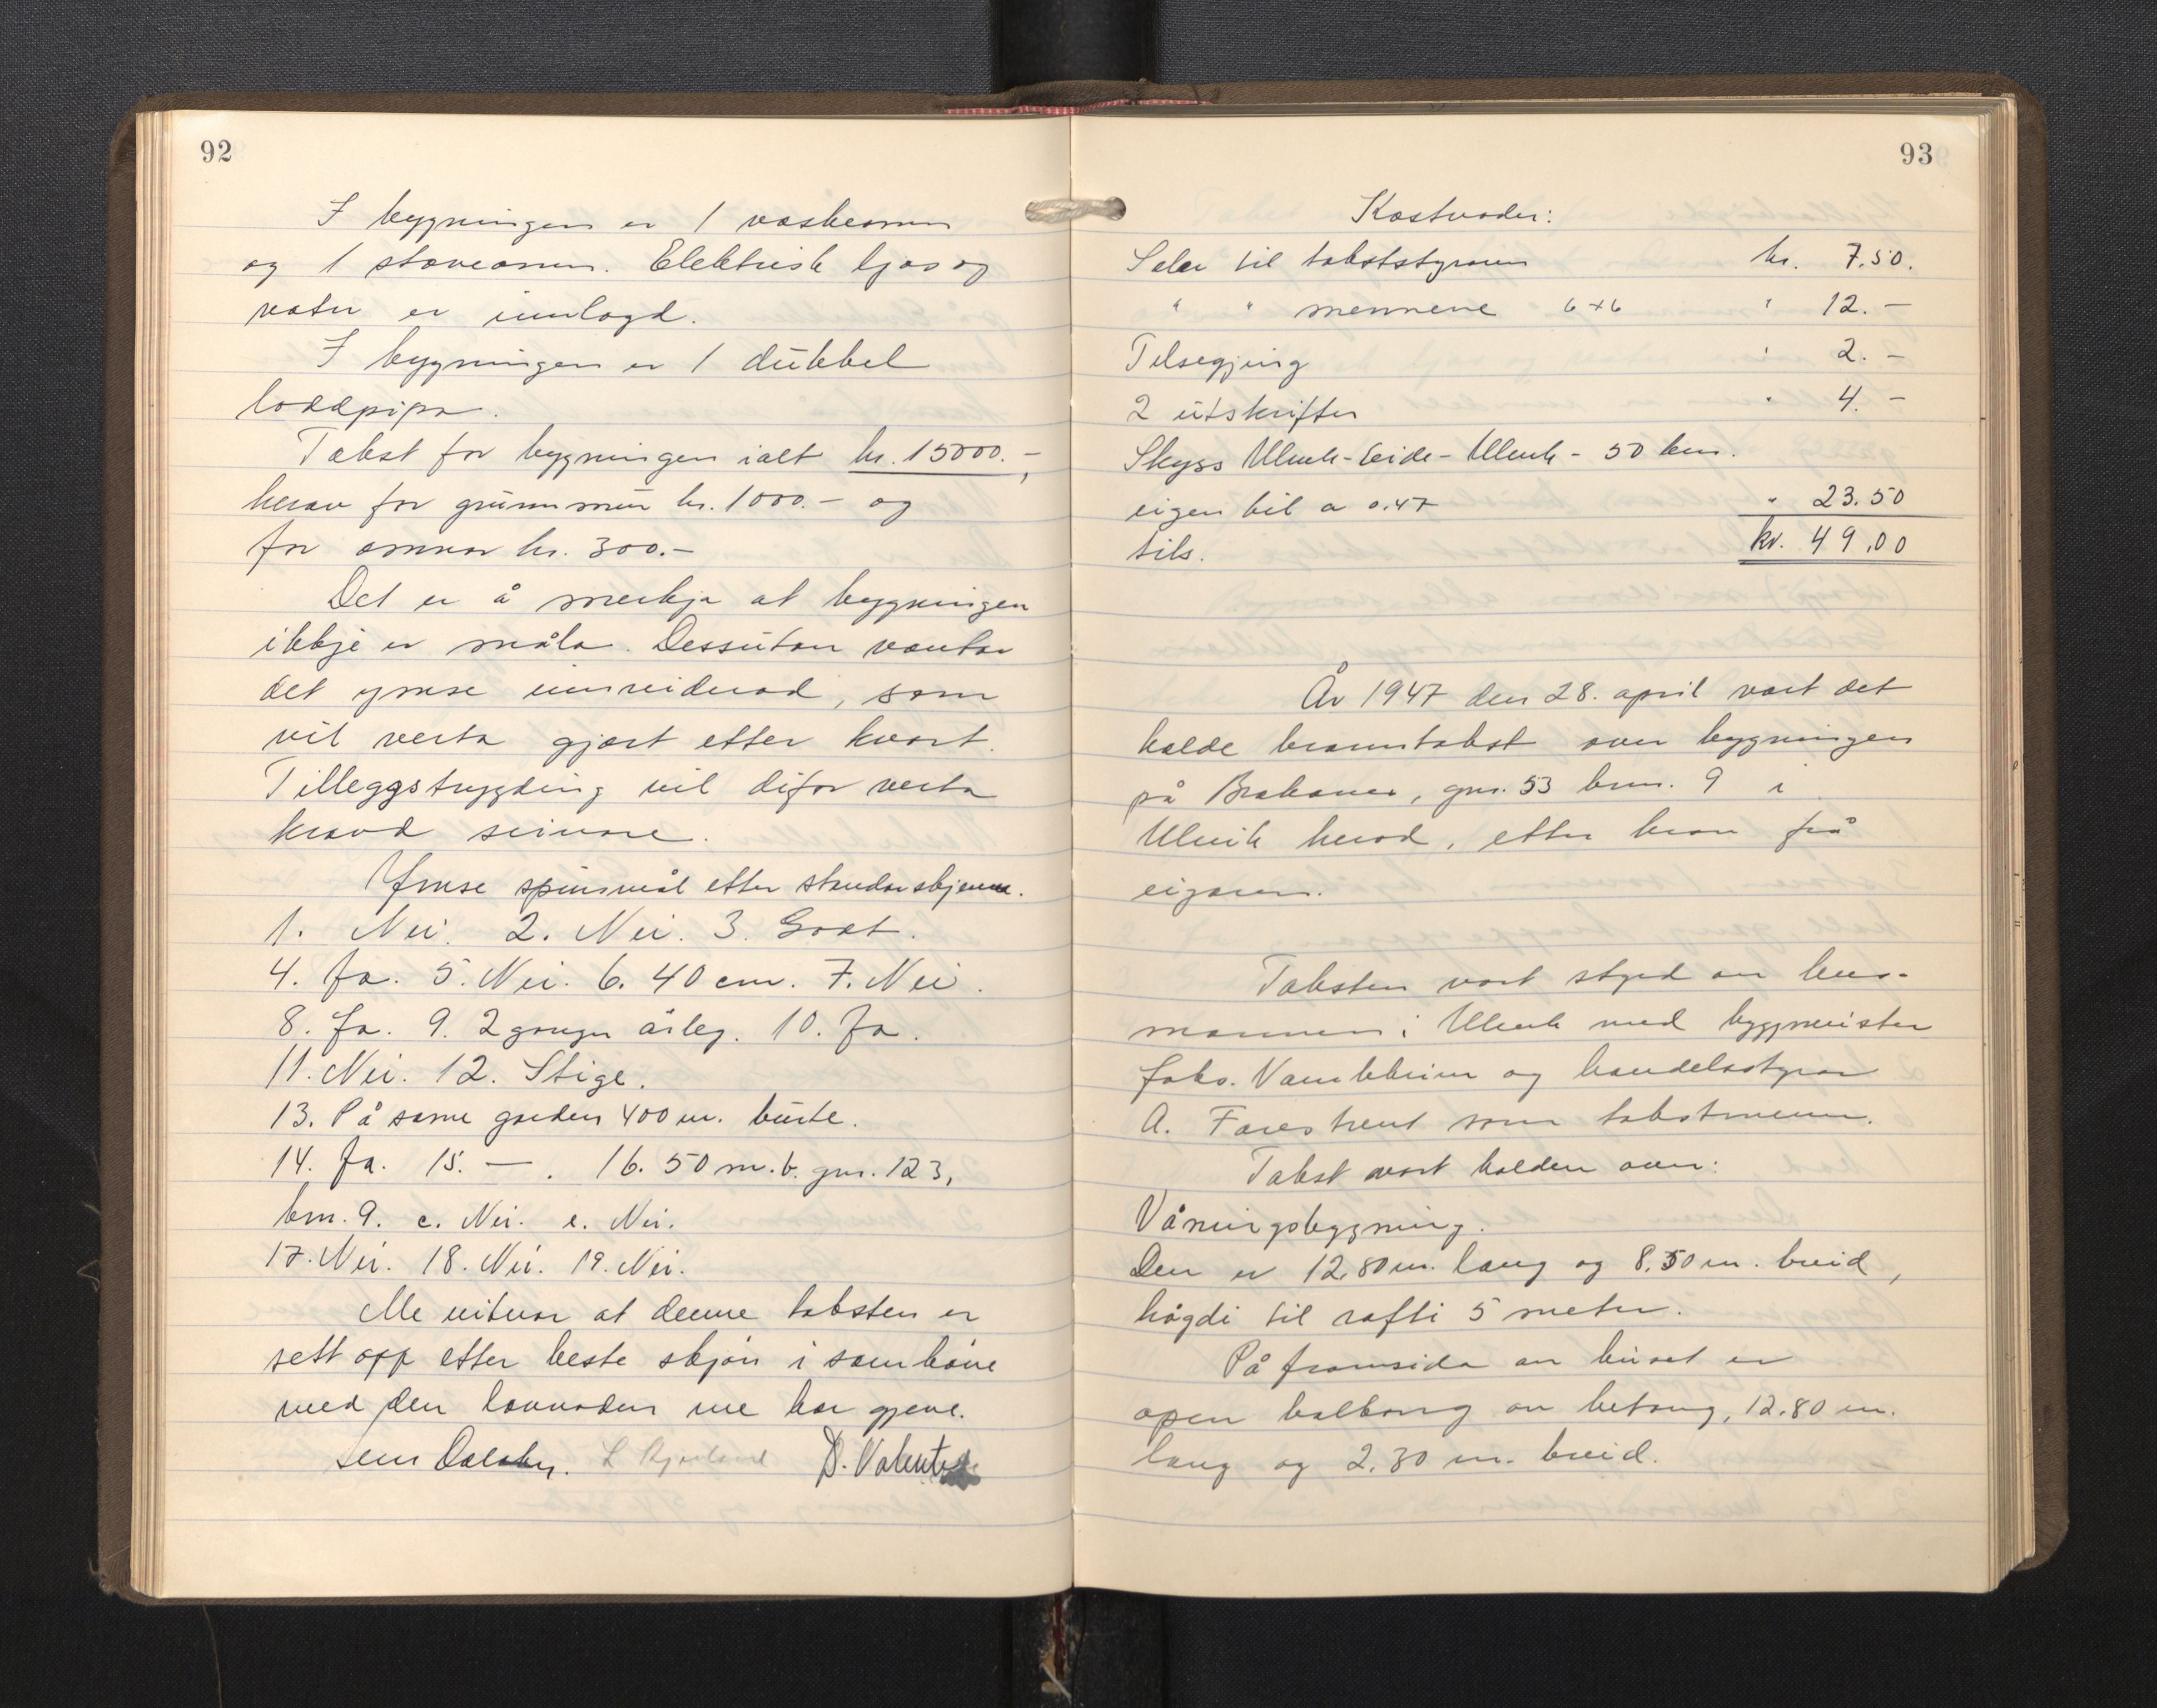 92
I bygningen er 1 vaskeomn
og 1 stoveomn. Elektrisk ljos og
vatn er innlagd.
I bygningen er 1 dubbel
loddpipa.
Takst for bygningen ialt kr. 15000.-,
herav for grunnmur kr. 1000.- og
for omnar kr. 300.-
Det er å merkja at bygningen
ikkje er måla. Dessutan vantar
det ymse innreidnad, som
vil verta gjort etter kvart.
Tilleggstrygding vil difor verta
kravd seinare.
Ymse spursmål etter standarskjema.
1. Nei. 2. Nei. 3. Godt.
4. Ja. 5. Nei. 6. 40 cm. 7. Nei.
8. Ja. 9. 2 gonger årleg. 10. Ja.
11. Nei. 12. Stige.
13. På same garden 400 m. burte.
14. Ja. 15. — . 16. 50 m. b. gnr. 123,
brn. 9. c. Nei. e. Nei.
17. Nei. 18. Nei. 19. Nei.
Me vitnar at denne taksten er
sett opp etter beste skjøn i samhøve
med den lovnaden me har gjeve.
D. Valent
93
Kostnader:
Salær til takststyraren kr. 7.50.
" " mennene 6+6 " 12.—
Tilsegjing " 2.—
2 utskrifter " 4.—
Skyss Ulvik-Eide-Ulvik - 50 km.
eigen bil a 0.47 " 23.50
tils. kr. 49,00
År 1947 den 28. april vart det
halde branntakst over bygningen
på Brakanes, gnr. 53 brn. 9 i
Ulvik herad, etter krav frå
eigaren.
Taksten vart styrd av lens-
mannen i Ulvik med byggmeister
Joks. Vambheim og handelsstyrar
A. Farestveit som takstmenn.
Takst vart halden over:
Våningsbygning.
Den er 12,80 m. lang og 8,50 m. breid,
høgdi til rafti 5 meter.
På framsida av huset er
open balkong av betong, 12.80 m.
lang og 2.30 m. breid.